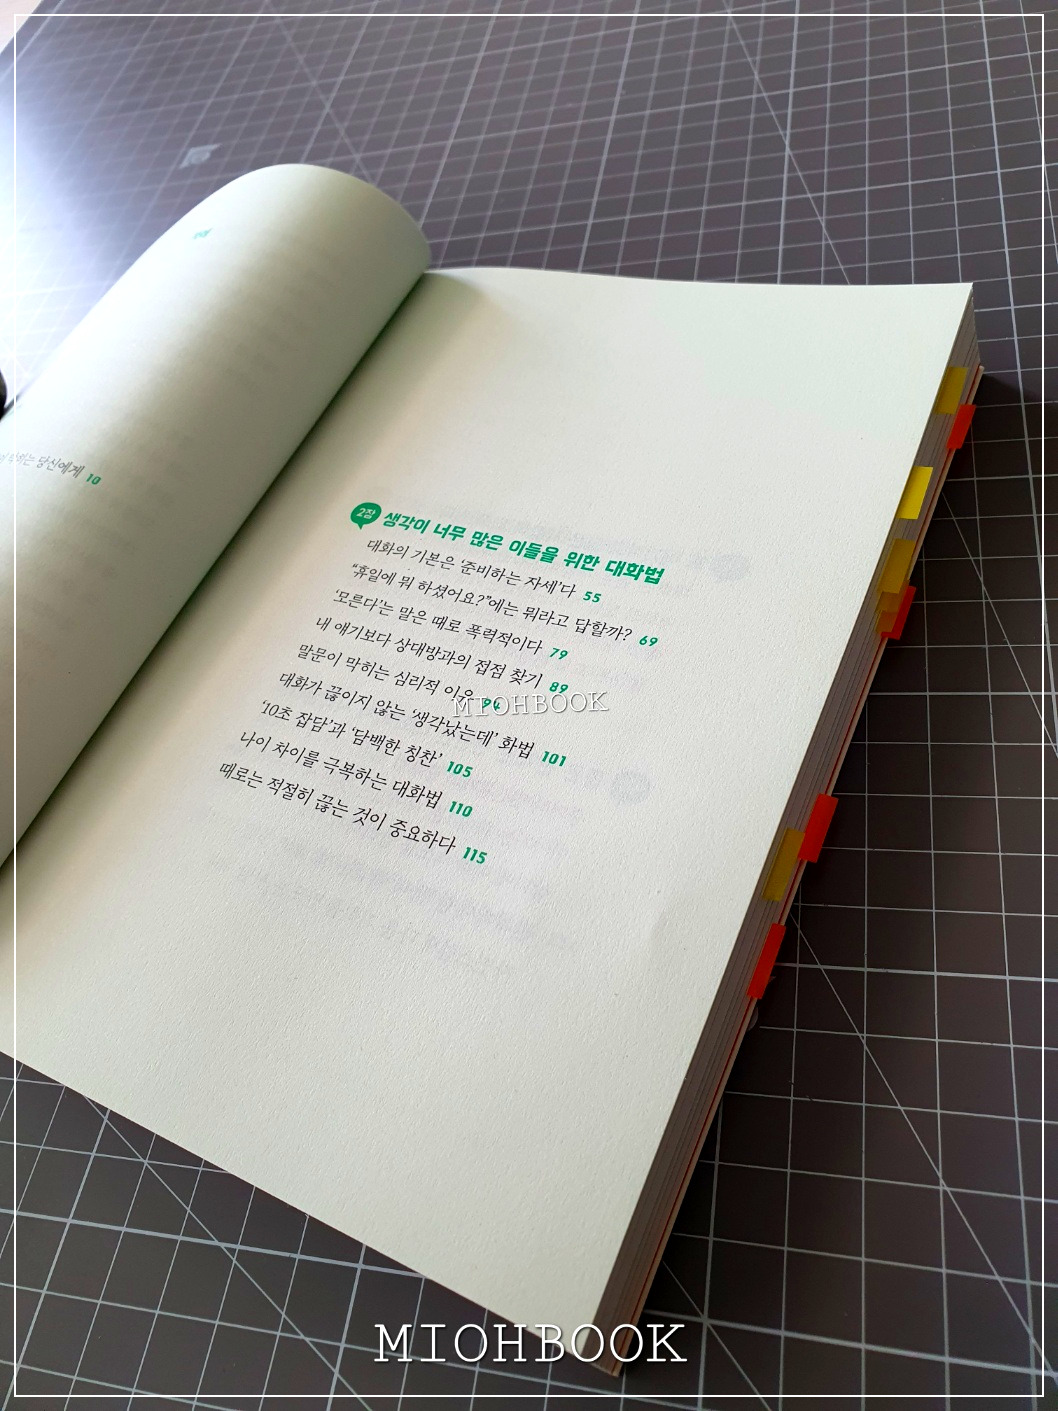 차례
막히는 당신에게 10
2장 생각이 너무 많은 이들을 위한 대화법
대화의 기본은 ‘준비하는 자세’다 55
“휴일에 뭐 하셨어요?”에는 뭐라고 답할까? 69
‘모른다’는 말은 때로 폭력적이다 79
내 얘기보다 상대방과의 접점 찾기 89
말문이 막히는 심리적 이유 94
MIOHBOOK
대화가 끊이지 않는 ‘생각났는데’ 화법 101
‘10초 잡담’과 ‘담백한 칭찬’ 105
나이 차이를 극복하는 대화법 110
때로는 적절히 끊는 것이 중요하다 115
MIOHBOOK